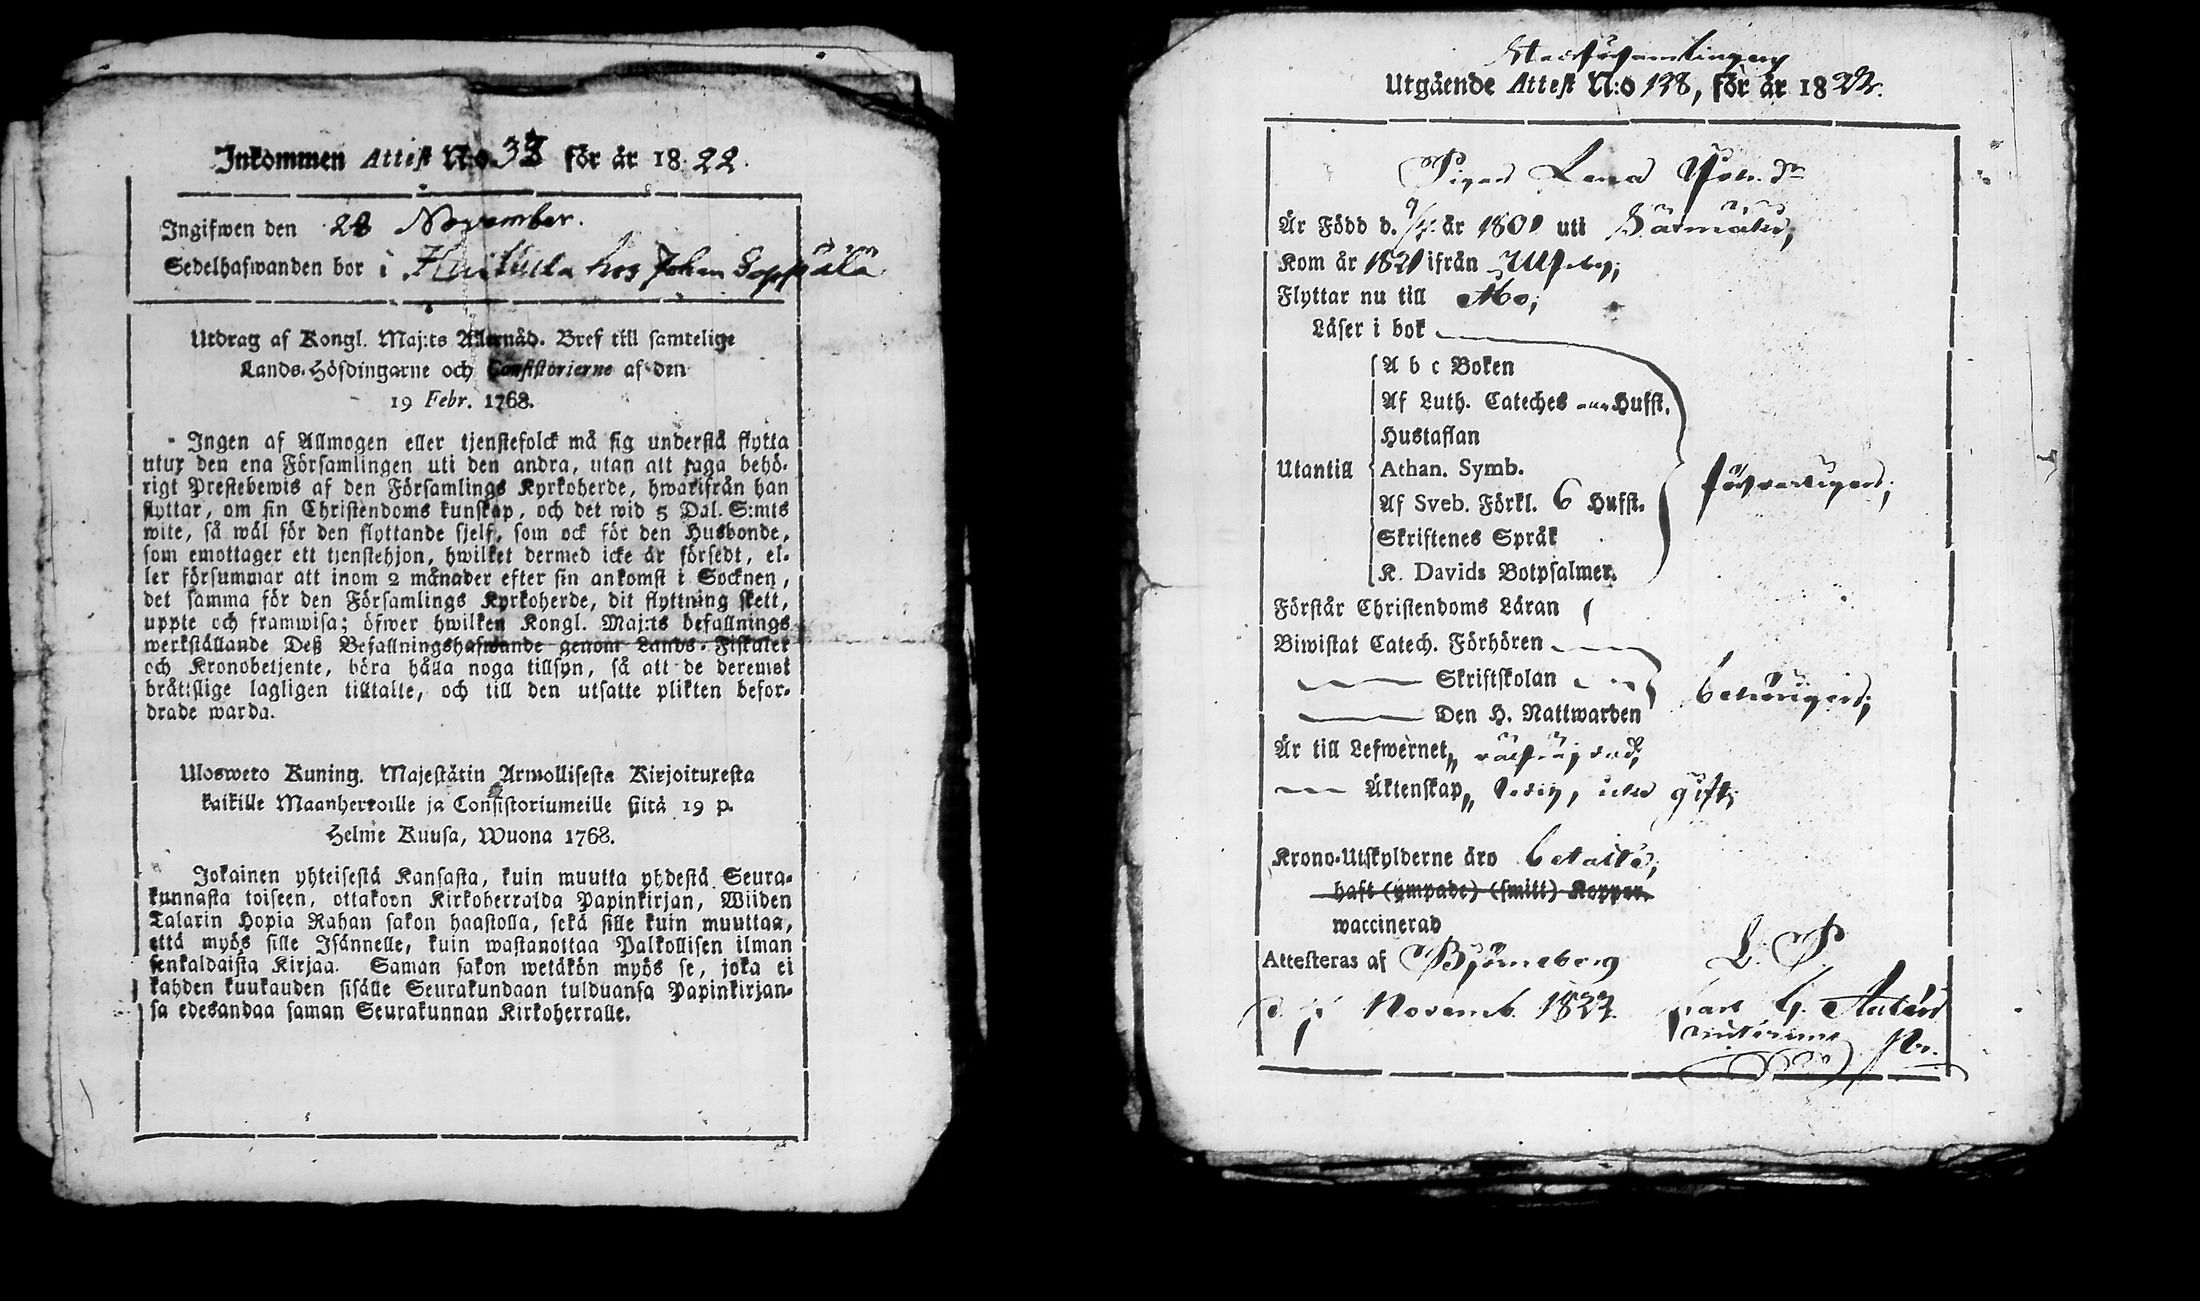 Inkommen Attest N:o 38 för år 1822.
Ingifwen den 28 November.
Sedelhafwanden bor i Huikkula hos Johan Seppälä
Utdrag af Kongl. Maj:ts Allernåd. Bref till samtelige
Lands-Höfdingarne och Consistorierne af den
19 Febr. 1768.
Ingen af Allmogen eller tjenstefolck må sig understå flytta
utur den ena Församlingen uti den andra, utan att taga behö-
rigt Prestebewis af den Församlings Kyrkoherde, hwarifrån han
flyttar, om sin Christendoms kunskap, och det wid 5 Dal. S:mts
wite, så wäl för den flyttande sjelf, som ock för den Husbonde,
som emottager ett tjenstehjon, hwilket dermed icke är försedt, el-
ler försummar att inom 2 månader efter sin ankomst i Socknen,
det samma för den Församlings Kyrkoherde, dit flyttning skett,
uppte och framwisa; öfwer hwilken Kongl. Maj:ts befallnings
werkställande Deß Befallningshafwande genom Lands-Fiskaler
och Kronobetjente, böra hålla noga tillsyn, så att de deremot
bråttslige lagligen tilltalte, och till den utsatte plikten befor-
drade warda.
Ulosweto Kuning. Majestätin Armollisesta Kirjoituxesta
kaikille Maanherroille ja Consistoriumeille siitä 19 p.
Helme Kuusa, Wuona 1768.
Jokainen yhteisestä Kansasta, kuin muutta yhdestä Seura-
kunnasta toiseen, ottakoon Kirkoherralda Papinkirjan, Wiiden
Talarin Hopia Rahan sakon haastolla, sekä sille kuin muuttaa,
että myös sille Isännelle, kuin wastanottaa Palkollisen ilman
senkaldaista Kirjaa. Saman sakon wetäkön myös se, joka ei
kahden kuukauden sisälle Seurakundaan tulduansa Papinkirjan-
sa edesandaa saman Seurakunnan Kirkoherralle.
Stadsförsamlingens
Utgående Attest N:o 138, för år 1822.
Pigan Lena Joh. dr
Är Född d. år 1801 uti Sastmola;
Kom år 1821 ifrån Ulfsby;
Flyttar nu till Åbo;
Läser i bok
A b c Boken
Af Luth. Cateches Hufst.
Hustaflan
Utantill Athan. Symb.
Af Sveb. Förkl. 6 Hufst.
Skriftenes Språk
K. Davids Botpsalmer.
försvarligen;
Förstår Christendoms Läran
Biwistat Catech. Förhören
Skriftskolan
Den H. Nattwarden
behörigen;
Är till Lefwernet, välfräjdad;
Äktenskap, ledig, icke gift;
Krono-Utskylderne äro betalte;
haft (ympade) (smitt) Koppor.
waccinerad
Attesteras af Björneborg L. P.
d. Novemb. 1822. Carl G.